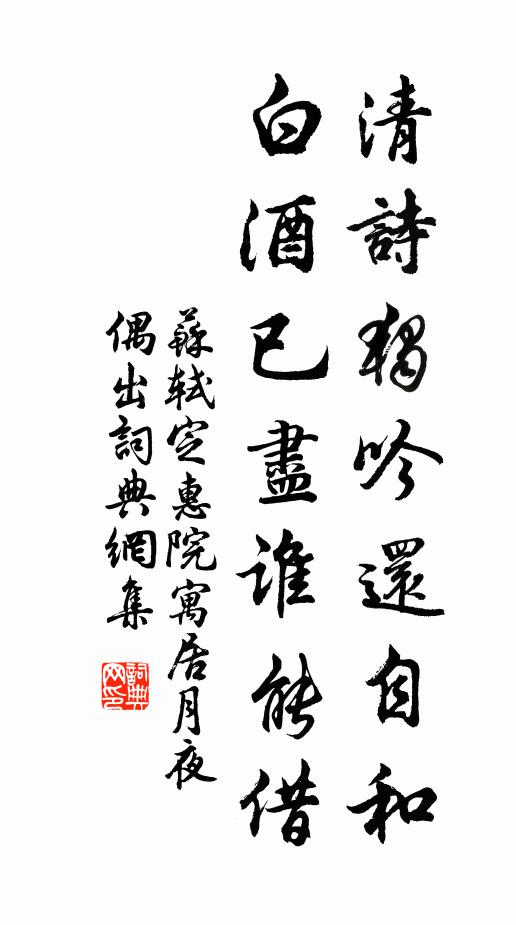 清詩獨吟還自和
白酒已盡誰能借
蘇軾定惠院寓居月夜
偶出詞典網集
詞典网印